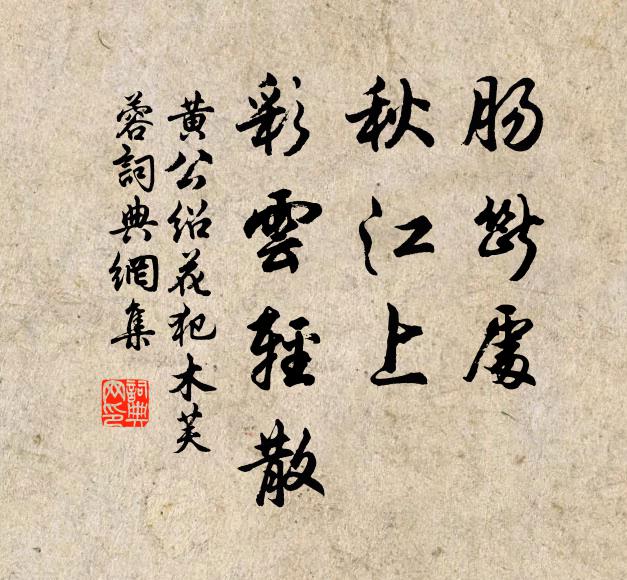 肠斷處
秋江上
彩雲輕散
黄公紹花犯木芙
蓉詞典網集
詞典
网印